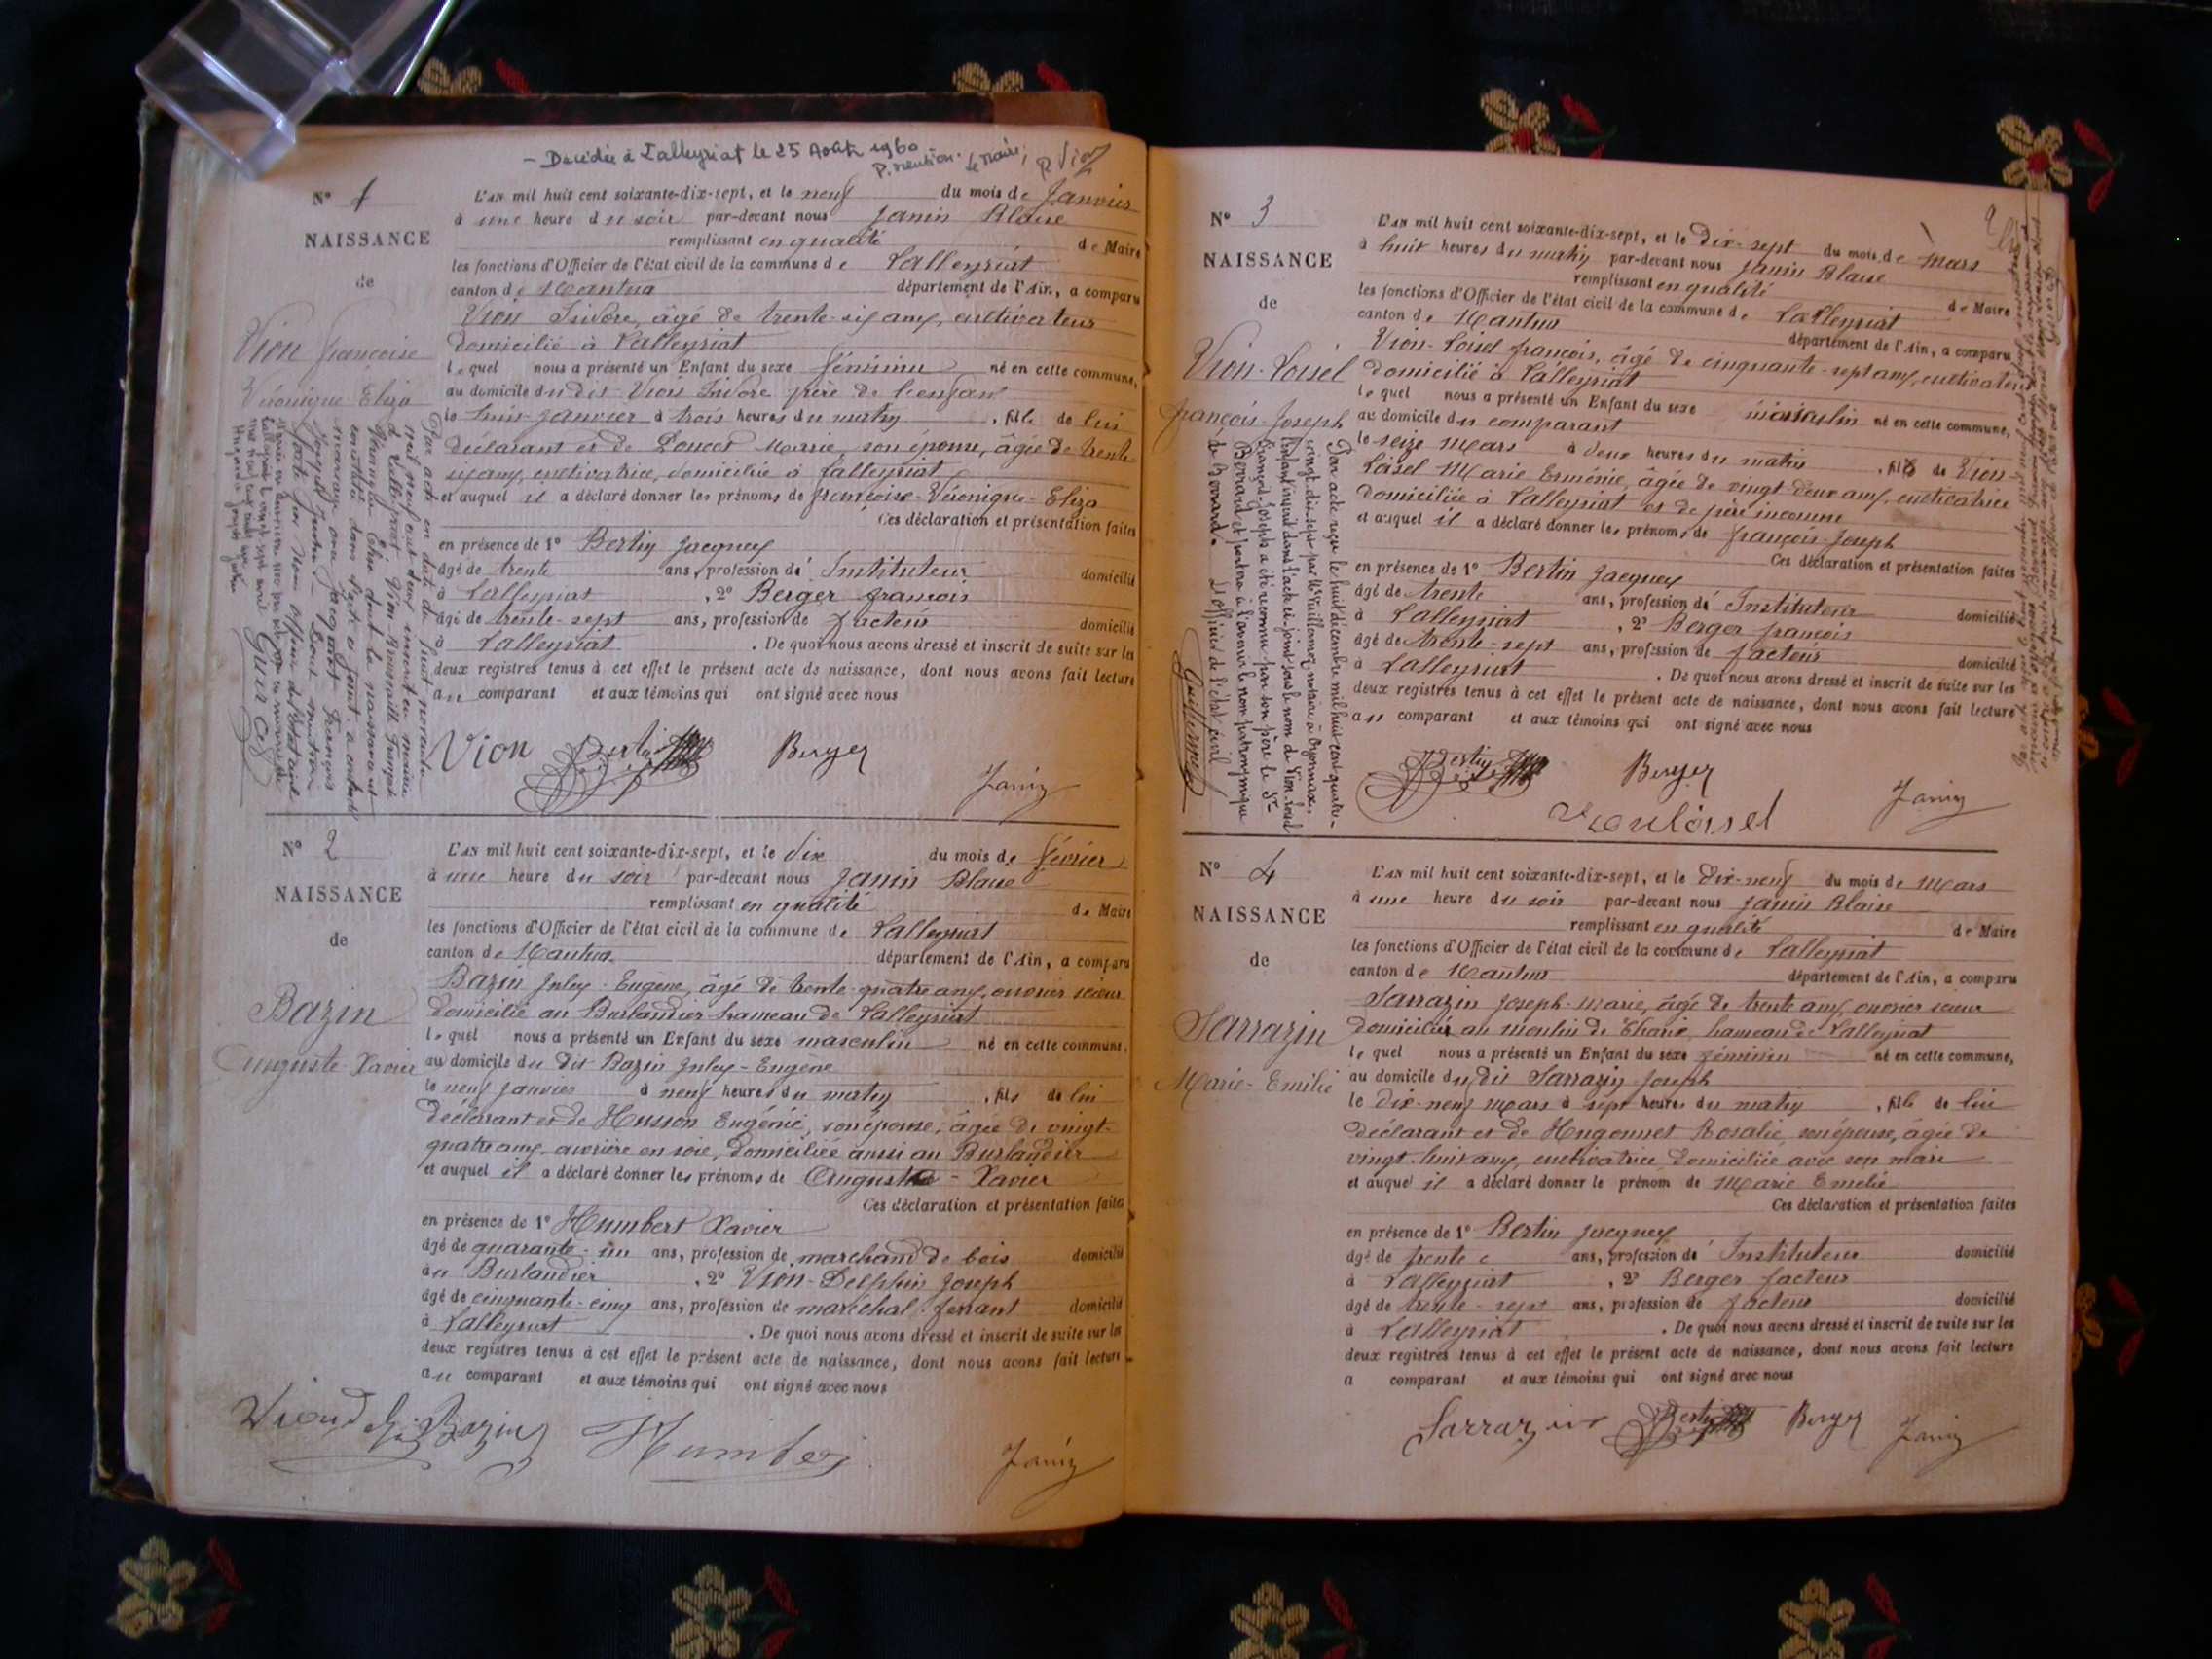 - Décédée à Lalleyriat le 25 Août 1960
P. mention. Le Maire,
Nº 1
NAISSANCE
de
Vion françoise
Véronique Eliza
L'AN mil huit cent soixante-dix-sept, et le neuf du mois de Janvier
à une heure du soir par-devant nous Janin Blaise
remplissant en qualité de Maire
les fonctions d'Officier de l'état civil de la commune de Lalleyriat
canton de Nantua département de l'Ain, a comparu
Vion Isidore, âgé de trente-six ans, cultivateur
domicilié à Lalleyriat
lequel nous a présenté un Enfant du sexe féminin né en cette commune,
au domicile du dit Vion Isidore père de l'enfant
le huit janvier à trois heures du matin, fille de lui
déclarant et de Poncet Marie, son épouse, âgée de trente
six ans, cultivatrice, domiciliée à Lalleyriat
et auquel il a déclaré donner les prénoms de françoise-Véronique-Eliza
Ces déclaration et présentation faites
en présence de 1º Bertin Jacques
âgé de trente ans, profession d' Instituteur domicilié
à Lalleyriat, 2º Berger françois
âgé de trente-sept ans, profession de facteur domicilié
à Lalleyriat. De quoi nous avons dressé et inscrit de suite sur les
deux registres tenus à cet effet le présent acte de naissance, dont nous avons fait lecture
au comparant et aux témoins qui ont signé avec nous
Vion Bertin Berger
Janin
Nº 2
NAISSANCE
de
Bazin
Auguste-Xavier
L'AN mil huit cent soixante-dix-sept, et le dix du mois de février
à une heure du soir par-devant nous Janin Blaise
remplissant en qualité de Maire
les fonctions d'Officier de l'état civil de la commune de Lalleyriat
canton de Nantua département de l'Ain, a comparu
Bazin Jules-Eugène, âgé de trente-quatre ans, ouvrier scieur
domicilié au Burlandier hameau de Lalleyriat
lequel nous a présenté un Enfant du sexe masculin né en cette commune,
au domicile du dit Bazin Jules-Eugène
le neuf janvier à neuf heures du matin, fils de lui
déclarant et de Husson Eugénie, son épouse, âgée de vingt-
quatre ans, ouvrière en soie, domiciliée aussi au Burlandier
et auquel il a déclaré donner les prénoms de Auguste-Xavier
Ces déclaration et présentation faites
en présence de 1º Humbert Xavier
âgé de quarante-un ans, profession de marchand de bois domicilié
au Burlandier, 2º Vion-Delphin Joseph
âgé de cinquante-cinq ans, profession de maréchal-ferrant domicilié
à Lalleyriat. De quoi nous avons dressé et inscrit de suite sur les
deux registres tenus à cet effet le présent acte de naissance, dont nous avons fait lecture
au comparant et aux témoins qui ont signé avec nous
Bazin Humbert
Janin
Nº 3
NAISSANCE
de
Vion-Loisel
françois-Joseph
Par acte reçu le huit décembre mil huit cent quatre-
vingt-dix-sept par Me Vuillermoz notaire à Oyonnax,
l'enfant inscrit dans l'acte ci-joint sous le nom de Vion-Loisel
François-Joseph a été reconnu par son père le Sr
Bernard et portera à l'avenir le nom patronymique
de Bernard. L'officier de l'état civil
L'AN mil huit cent soixante-dix-sept, et le dix-sept du mois de Mars
à huit heures du matin par-devant nous Janin Blaise
remplissant en qualité de Maire
les fonctions d'Officier de l'état civil de la commune de Lalleyriat
canton de Nantua département de l'Ain, a comparu
Vion-Loisel françois, âgé de cinquante-sept ans, cultivateur
domicilié à Lalleyriat
lequel nous a présenté un Enfant du sexe masculin né en cette commune,
au domicile du comparant
le seize Mars à deux heures du matin, fils de Vion-
Loisel Marie Esménie, âgée de vingt-deux ans, cultivatrice
domiciliée à Lalleyriat et de père inconnu
et auquel il a déclaré donner les prénoms de françois-Joseph
Ces déclaration et présentation faites
en présence de 1º Bertin Jacques
âgé de trente ans, profession d' Instituteur domicilié
à Lalleyriat, 2º Berger françois
âgé de trente-sept ans, profession de facteur domicilié
à Lalleyriat. De quoi nous avons dressé et inscrit de suite sur les
deux registres tenus à cet effet le présent acte de naissance, dont nous avons fait lecture
au comparant et aux témoins qui ont signé avec nous
Bertin Berger
Janin
Nº 4
NAISSANCE
de
Sarrazin
Marie-Emilie
L'AN mil huit cent soixante-dix-sept, et le dix-neuf du mois de Mars
à une heure du soir par-devant nous Janin Blaise
remplissant en qualité de Maire
les fonctions d'Officier de l'état civil de la commune de Lalleyriat
canton de Nantua département de l'Ain, a comparu
Sarrazin Joseph-Marie, âgé de trente ans, ouvrier scieur
domicilié au moulin de Charix, hameau de Lalleyriat
lequel nous a présenté un Enfant du sexe féminin né en cette commune,
au domicile du dit Sarrazin Joseph
le dix-neuf Mars à sept heures du matin, fille de lui
déclarant et de Hugonnet Rosalie, son épouse, âgée de
vingt-huit ans, cultivatrice domiciliée avec son mari
et auquel il a déclaré donner le prénom de Marie Emélie
Ces déclaration et présentation faites
en présence de 1º Bertin Jacques
âgé de trente ans, profession d' Instituteur domicilié
à Lalleyriat, 2º Berger facteur
âgé de trente-sept ans, profession de facteur domicilié
à Lalleyriat. De quoi nous avons dressé et inscrit de suite sur les
deux registres tenus à cet effet le présent acte de naissance, dont nous avons fait lecture
a comparant et aux témoins qui ont signé avec nous
Sarrazin Bertin Berger Janin